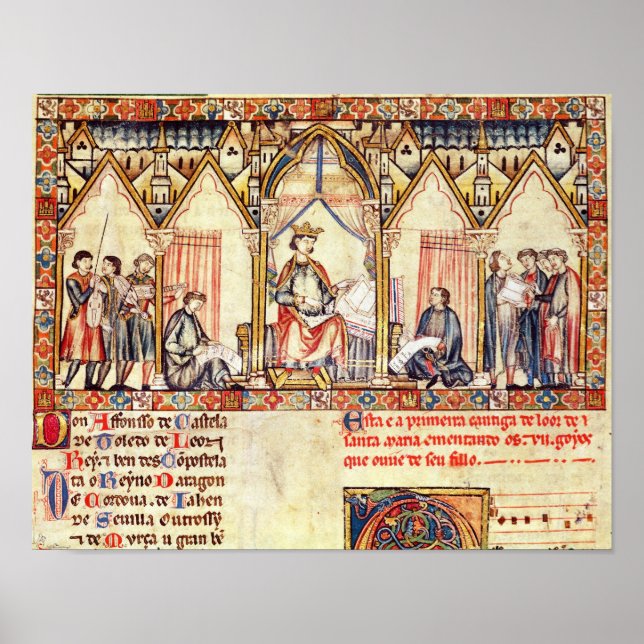 Don Affonsso de Castela
de Toledo de Leon
Rey τ ben des Conpostela
ta o Reyno Daragon
De Cordoua de Jahen
de Seuilla Outrossy
τ de Murça u gran bẽ
Esta e a primeira cantiga de loor de s
santa maria ementando os .vii. goyos
que ouue de seu fillo